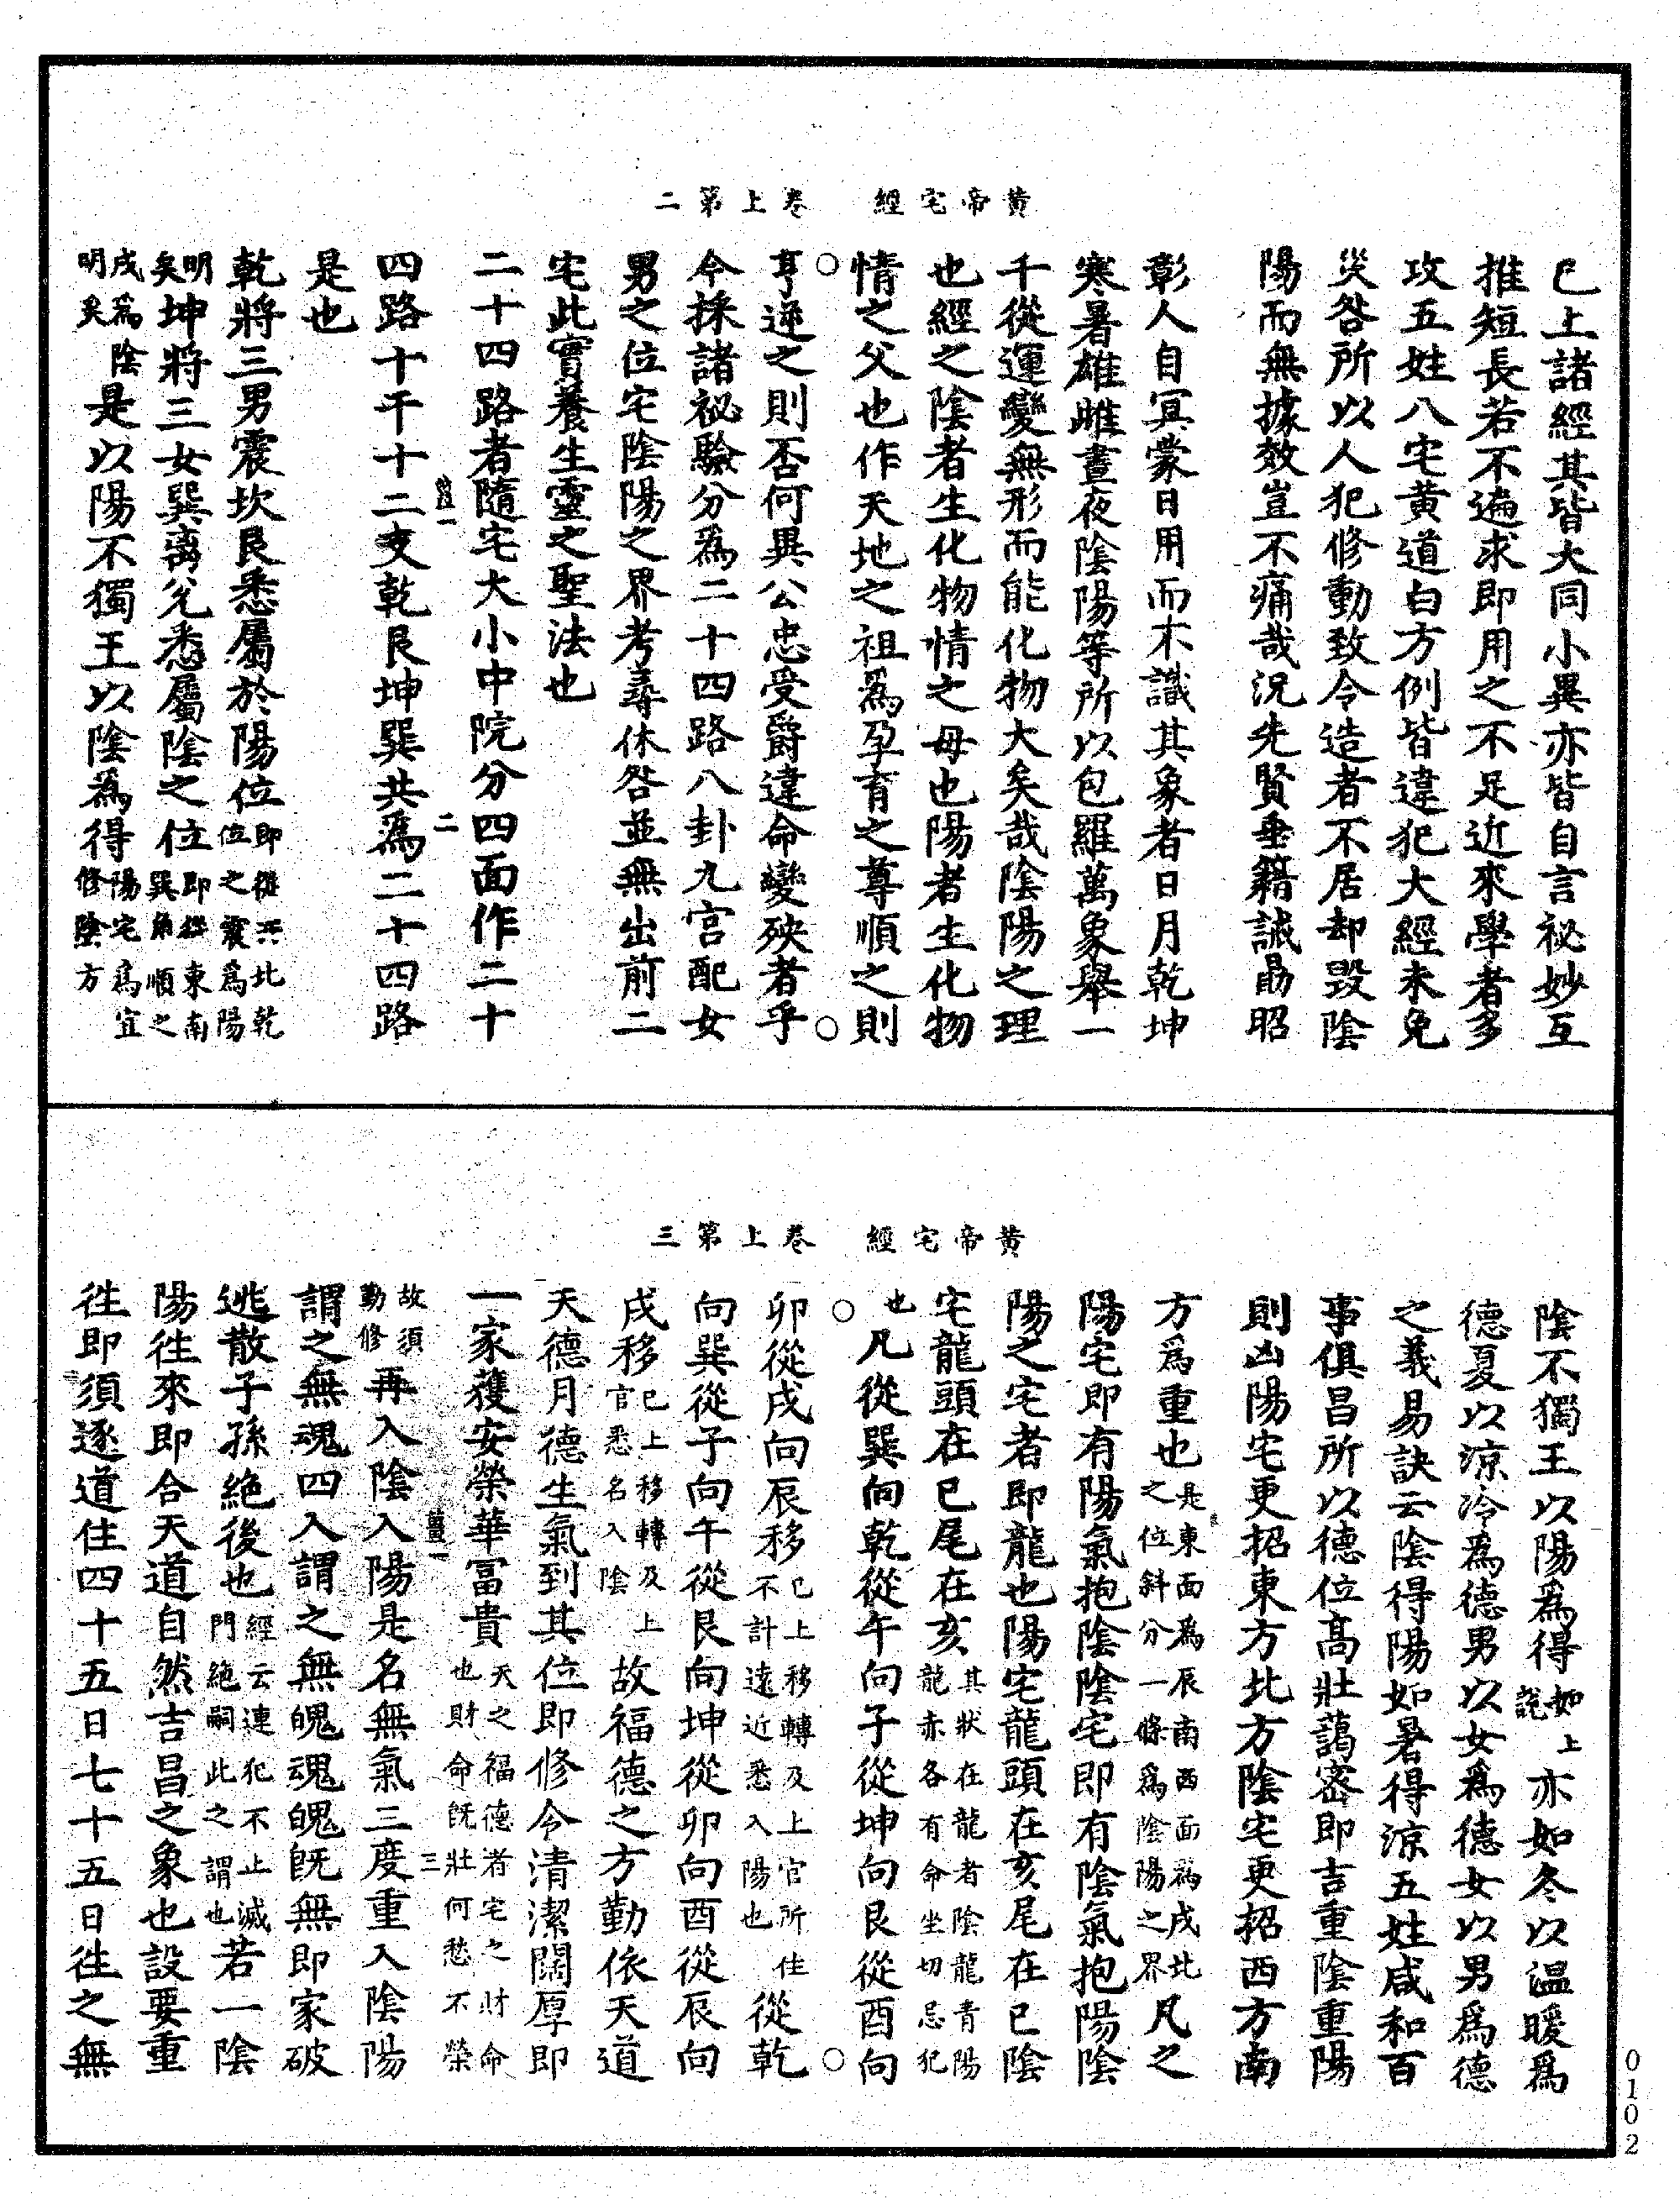 黃帝宅經　卷上第二
已上諸經其皆大同小異亦皆自言祕妙互
推短長若不遍求即用之不足近來學者多
攻五姓八宅黃道白方例皆違犯大經未免
災咎所以人犯修動致令造者不居却毀陰
陽而無據效豈不痛哉況先賢垂籍誡勗昭
彰人自冥蒙日用而不識其象者日月乾坤
寒暑雄雌晝夜陰陽等所以包羅萬象舉一
千從運變無形而能化物大矣哉陰陽之理
也經之陰者生化物情之母也陽者生化物
情之父也作天地之祖為孕育之尊順之則
亨逆之則否何異公忠受爵違命變殃者乎
今採諸祕驗分為二十四路八卦九宮配女
男之位宅陰陽之界考尋休咎並無出前二
宅此實養生靈之聖法也
二十四路者隨宅大小中院分四面作二十
四路十干十二支乾艮坤巽共為二十四路
是也
乾將三男震坎艮悉屬於陽位即從西北乾位之震為陽
明矣坤將三女巽离兌悉屬陰之位即從東南巽角順之
戌為陰明矣是以陽不獨王以陰為得陽宅為宜修陰方
黃帝宅經　卷上第三
陰不獨王以陽為得如上說亦如冬以温暖為
德夏以涼冷為德男以女為德女以男為德
之義易訣云陰得陽如暑得涼五姓咸和百
事俱昌所以德位高壯藹密即吉重陰重陽
則凶陽宅更招東方北方陰宅更招西方南
方為重也是東面為辰南西面為戌北之位斜分一條為陰陽之界凡之
陽宅即有陽氣抱陰陰宅即有陰氣抱陽陰
陽之宅者即龍也陽宅龍頭在亥尾在巳陰
宅龍頭在巳尾在亥其狀在龍者陰龍青陽龍赤各有命坐切忌犯
也凡從巽向乾從午向子從坤向艮從酉向
卯從戌向辰移已上移轉及上官所住不計遠近悉入陽也從乾
向巽從子向午從艮向坤從卯向酉從辰向
戌移已上移轉及上官悉名入陰故福德之方勤依天道
天德月德生氣到其位即修令清潔闊厚即
一家獲安榮華富貴天之福德者宅之財命也財命既壯何愁不榮
故須勤修再入陰入陽是名無氣三度重入陰陽
謂之無魂四入謂之無魄魂魄既無即家破
逃散子孫絶後也經云連犯不止滅門絶嗣此之謂也若一陰
陽往來即合天道自然吉昌之象也設要重
往即須逐道住四十五日七十五日往之無
0102